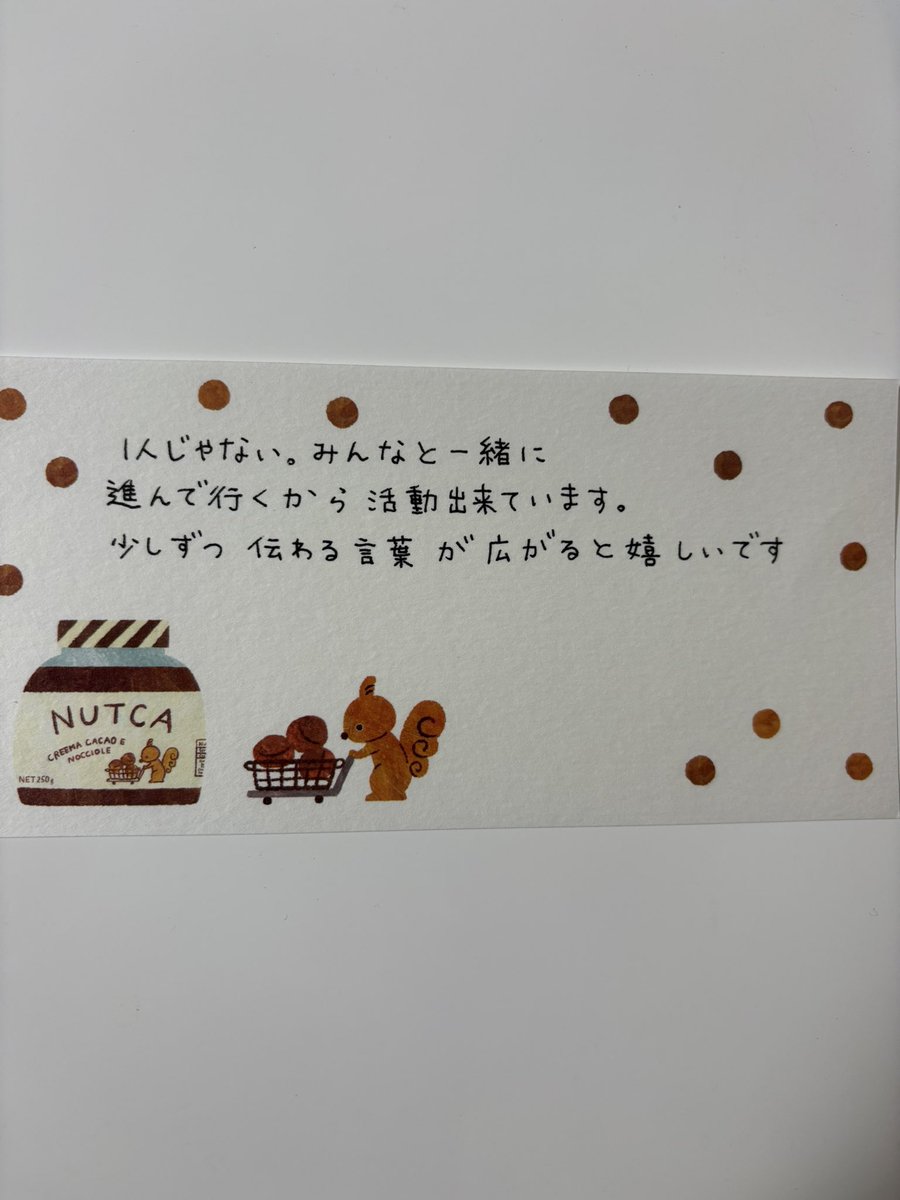 1人じゃない。みんなと一緒に
進んで行くから活動出来ています。
少しずつ 伝わる言葉 が広がると嬉しいです
NUTCA
CREEMA CACAO E
NOCCIOLE
NET 250g